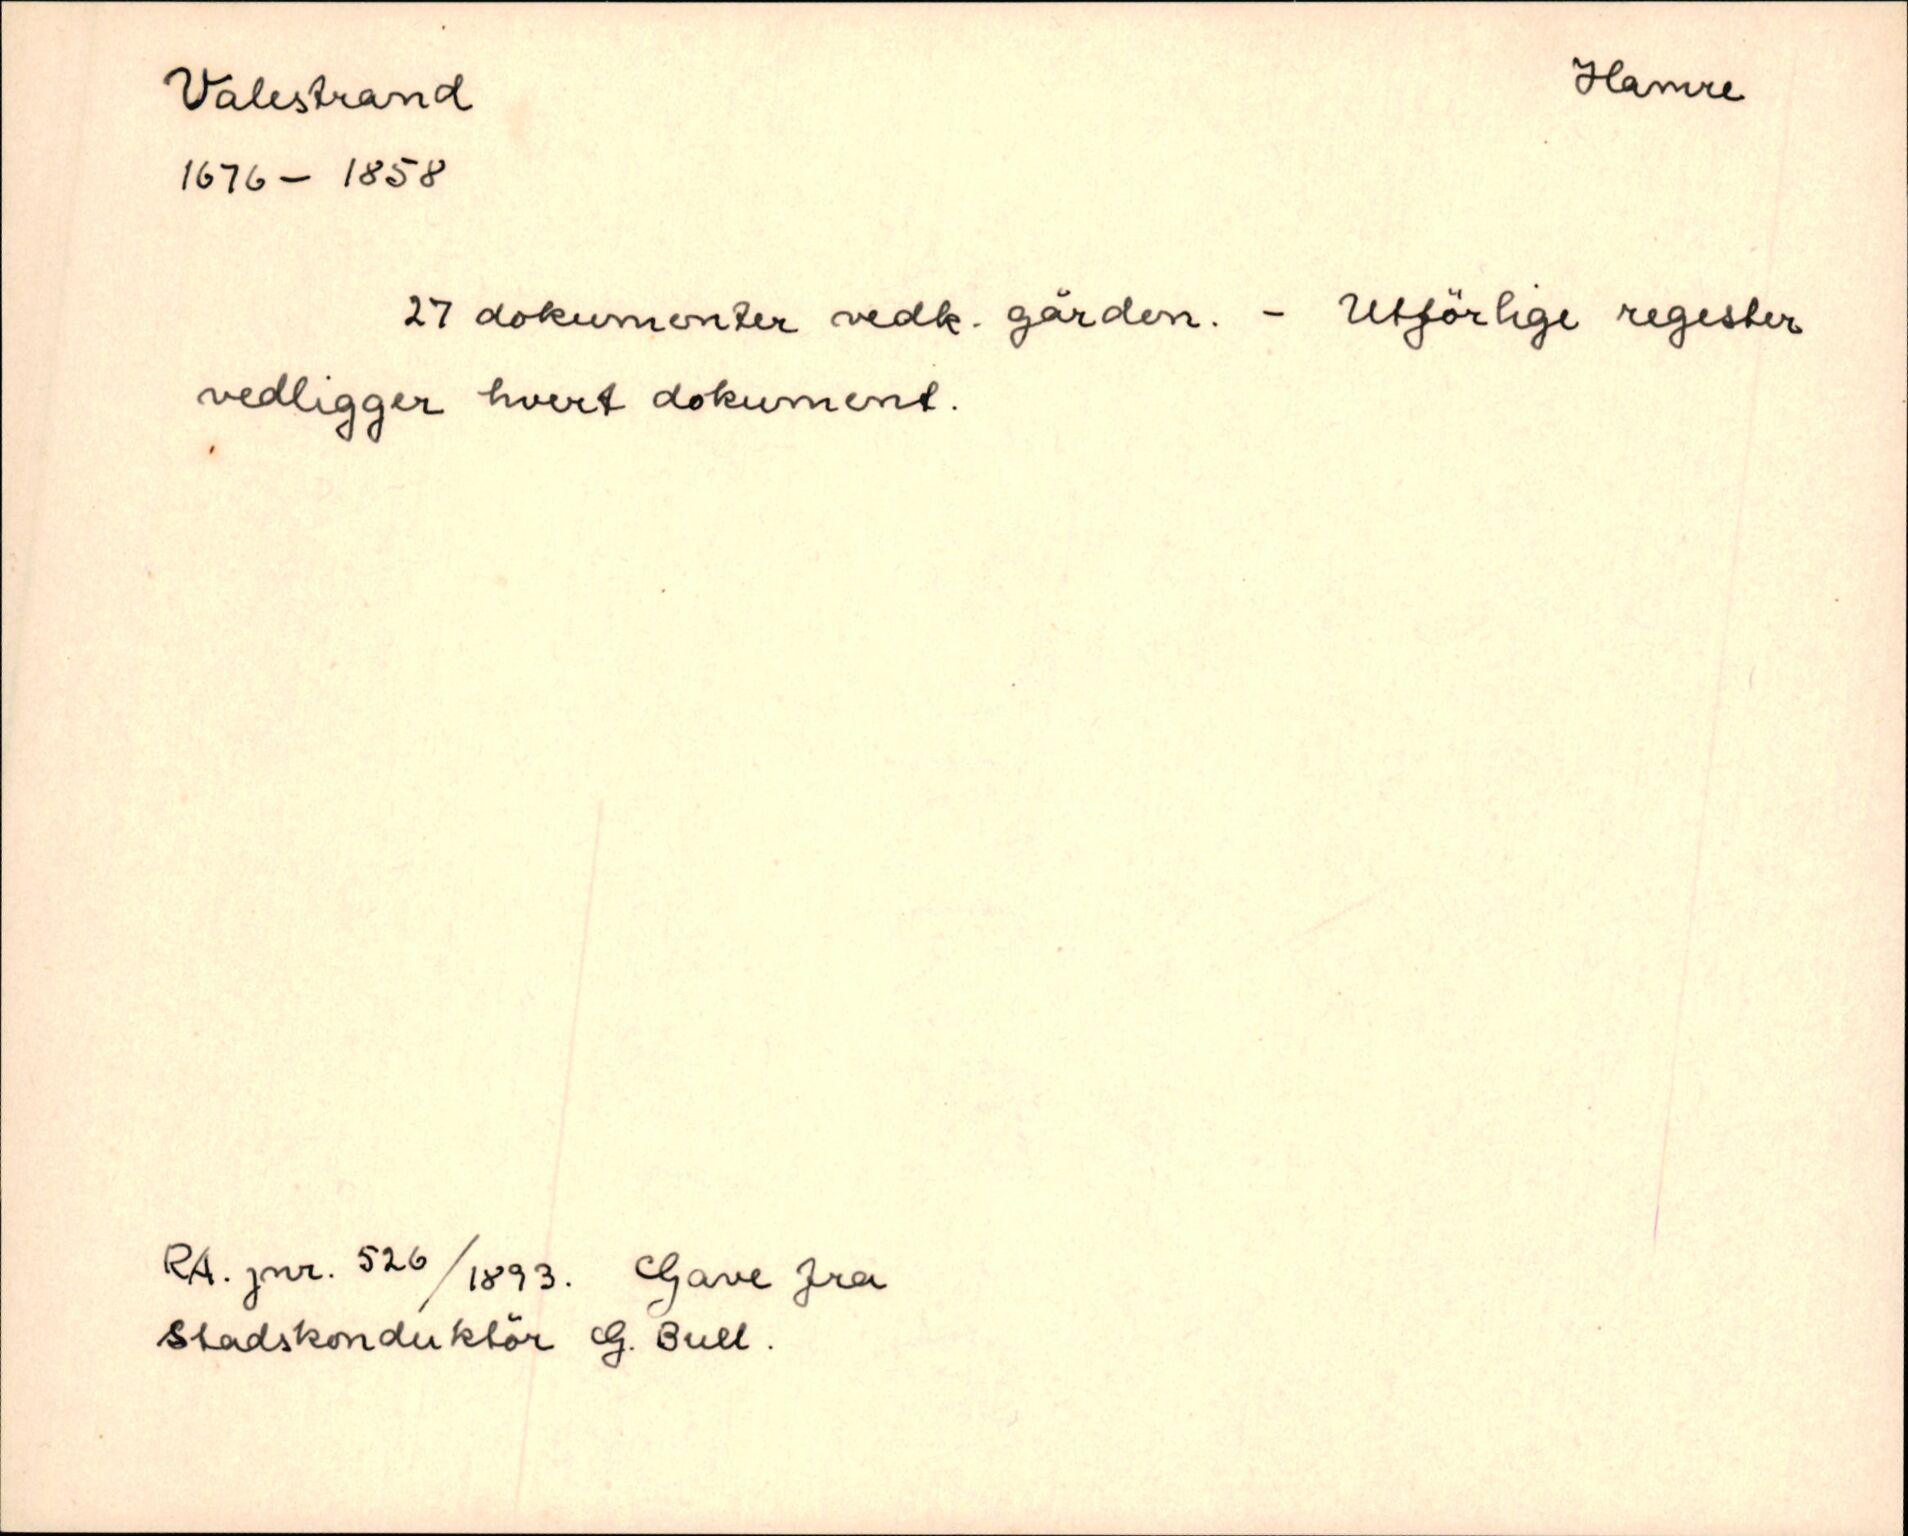 Valestrand
Hamre
1676 – 1858
27 dokumenter vedk. gården. – Utförlige regester
vedligger hvert dokument.
RA. jnr. 526/1893. Gave fra
Stadskonduktör G. Bull.